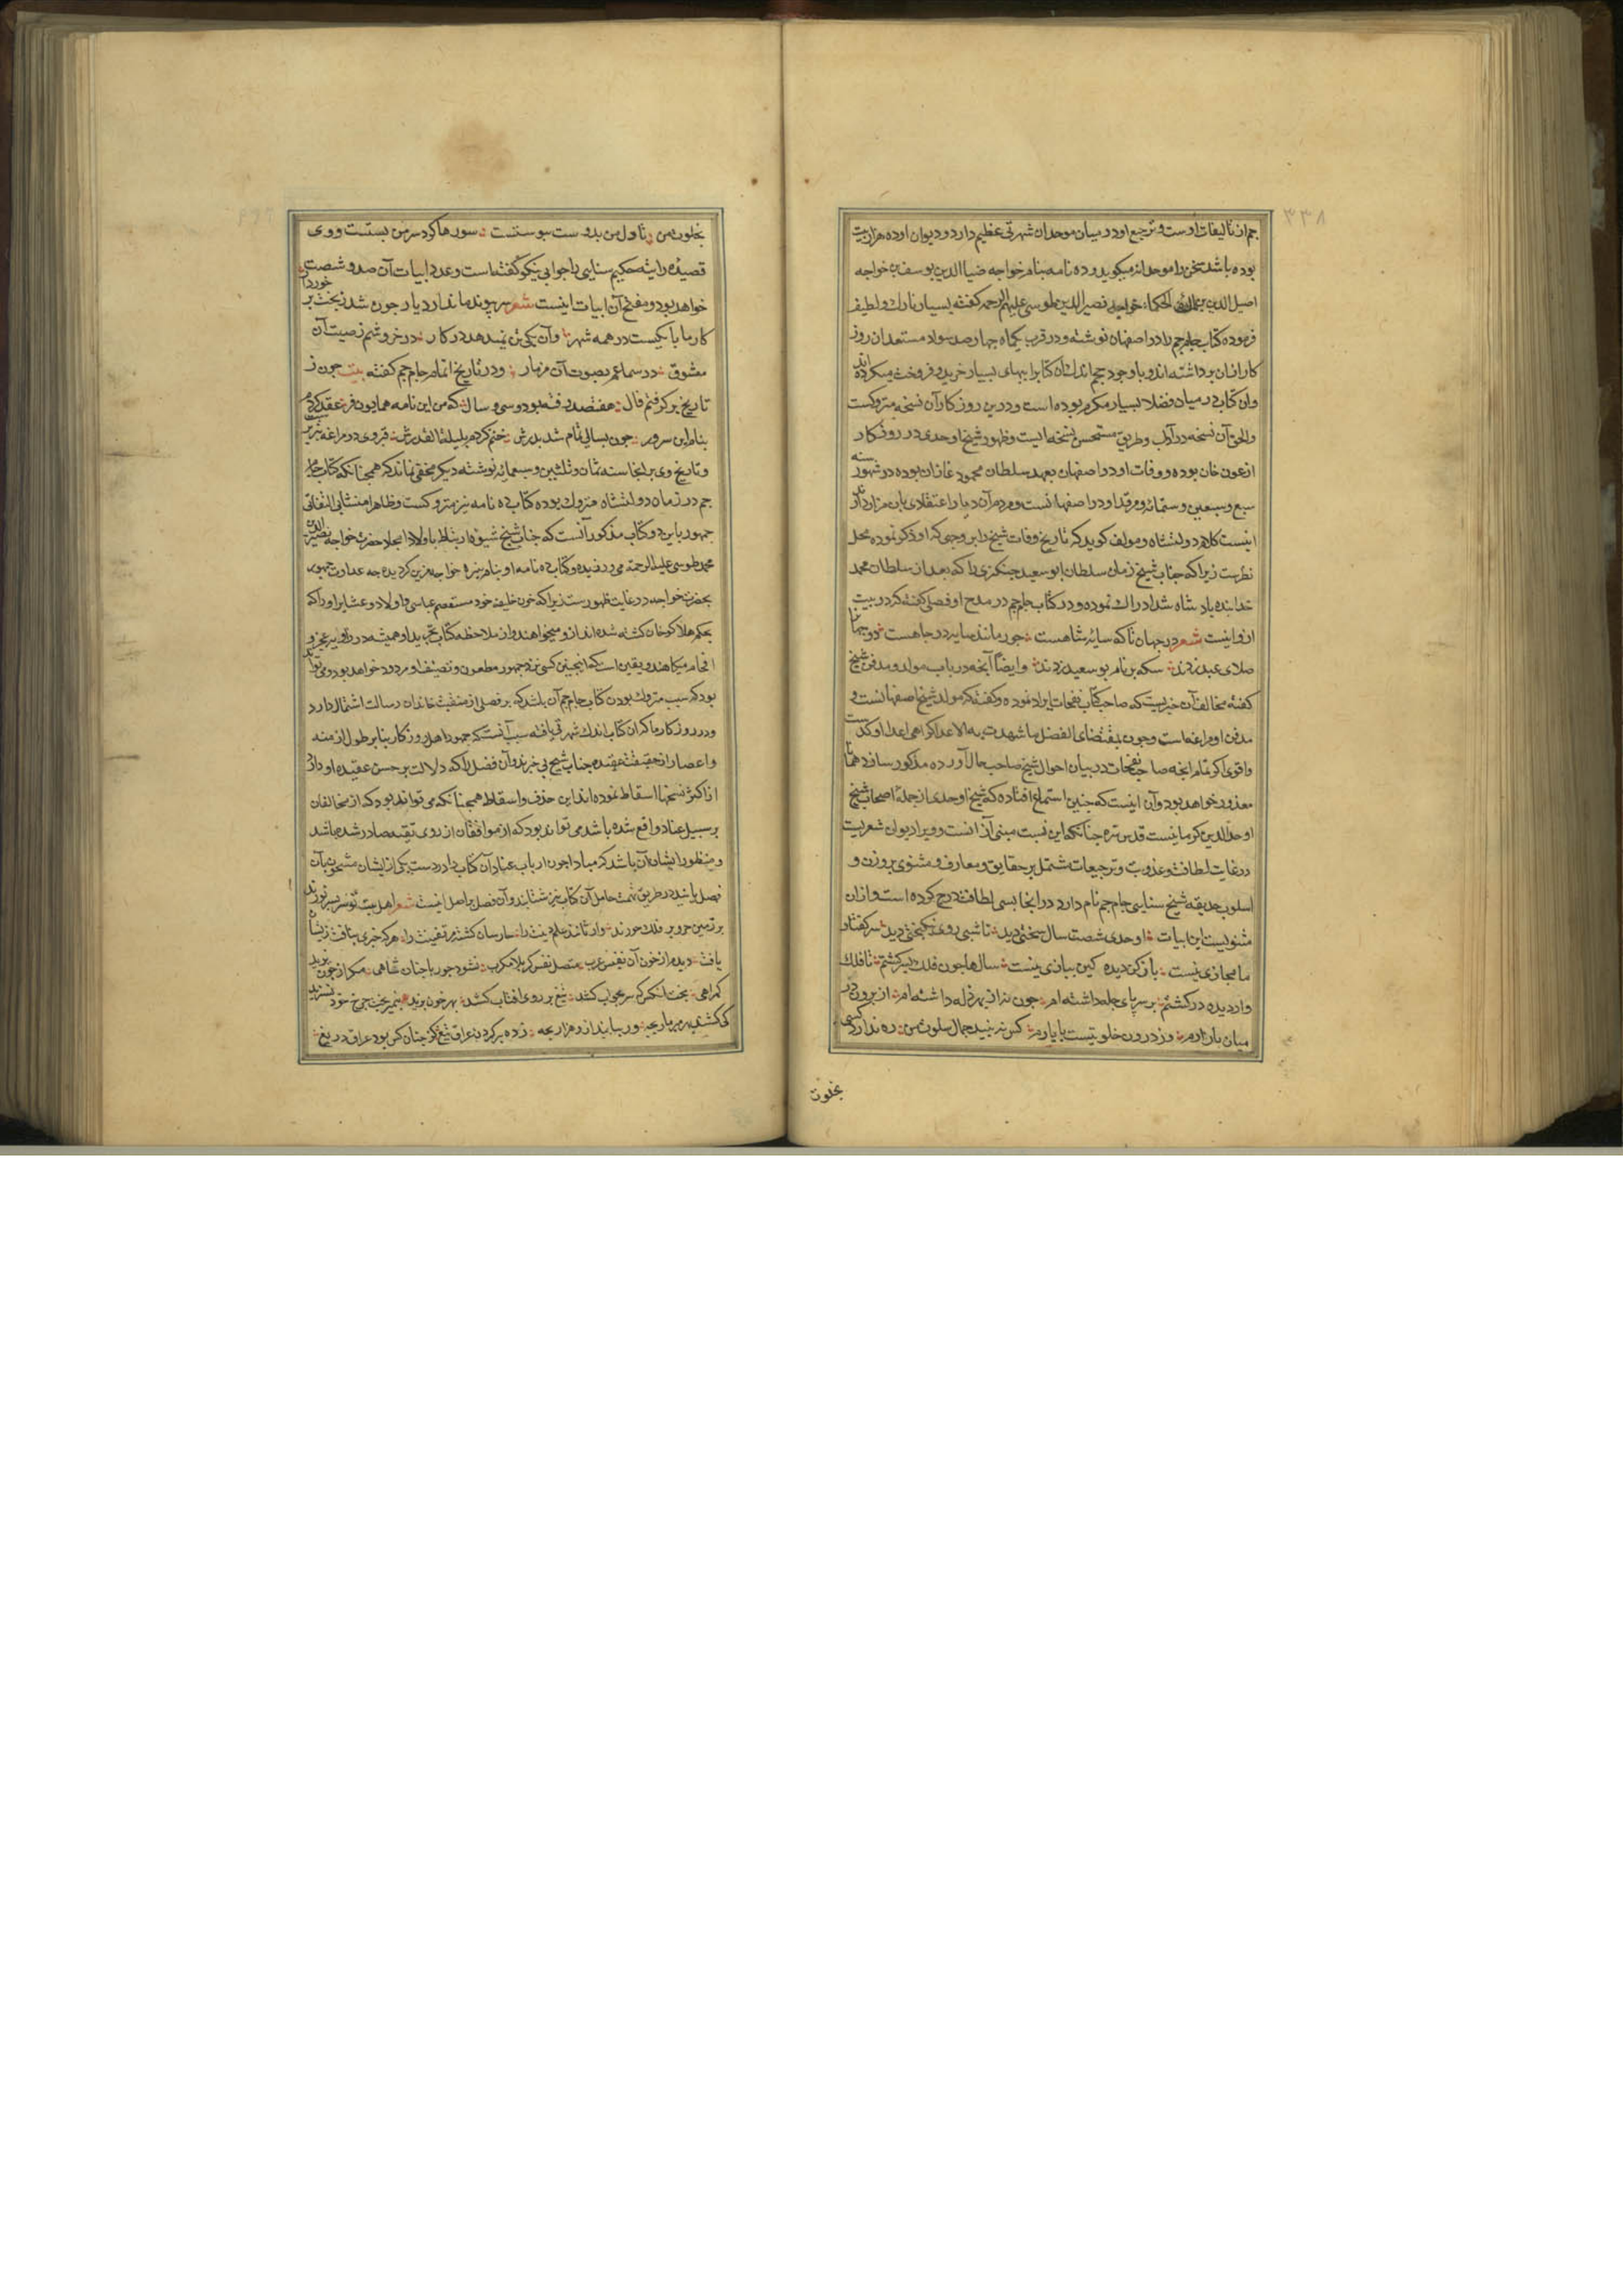 ۳۳۸
جم از تالیفات اوست و ترجیع او در میان موحدان شهرتی عظیم دارد و دیوان او ده هزار بیت
بوده باشد سخن را موحدانه میکوید و ده نامه بنام خواجه ضیا الدین یوسف بن خواجه
اصیل الدین بن خواجه نصیر الدین طوسی علیهم الرحمه کفته بسیار نازک و لطیف
فرموده کتاب جام جم را در اصفهان نوشته و در قرب یکماه چهار صد سواد مستعدان روز
کار ازان برداشته اند و با وجود حجم اندک آن کتابرا ببهای بسیار خرید و فروخت میکرده اند
و آن کتاب در میان فضلا بسیار مکرم بوده است و درین روزکار آن نسخه متروکست
والحق آن نسخه در آداب و طریق مستحسن نسخه ایست و ظهور شیخ اوحدی در روزکار
ارغون خان بوده و وفات او در اصفهان بعهد سلطان محمود غازان بوده در شهور سنه
سبع و سبعین و ستمائه و مرقد او در اصفهانست و مردم آن دیار را اعتقادی بان مزار دارند
اینست کلام دولتشاه و مولف کوید که تاریخ وفات شیخ را بر وجهی که او ذکر نموده محل
نظرست زیرا که جناب شیخ زمان سلطان ابو سعید چنکزی را که بعد از سلطان محمد
خدابنده پادشاه شد ادراک نموده و در کتاب جام جم در مدح او فصلی کفته که در بیت
از و اینست شعر در جهان تا که سایه شاهست چور مانند سایه در جاهست دو جهانرا
صلای عید زدند سکه بر نام بو سعید زدند و ایضا آنچه در باب مولد و مدفن شیخ
کفته مخالف آن خبریست که صاحب کتاب نفحات ایراد نموده و کفته که مولد شیخ اصفهانست و
مدفن او مراغه است و چون بمقتضای الفضل ما شهدت به الاعدا
واقوی اکر تمام آنچه صاحب نفحات در بیان احوال شیخ صاحب حال آورده مذکور سازد همانا
معذور خواهد بود و آن اینست که چنین استماع افتاده که شیخ اوحدی از جمله اصحاب شیخ
اوحد الدین کرمانیست قدس سره چنانکه این نسبت مبنی از آنست و ویرا دیوان شعریست
در غایت لطافت و عذوبت و ترجیعات مشتمل بر حقایق و معارف و مثنوی بر وزن و
اسلوب حدیقه شیخ سنایی جام جم نام دارد در انجا بسی لطافت درج کرده است و ازان
مثنویست این ابیات اوحدی شصت سال سختی دید تا شبی روی نیکبختی دید سر کفتار
ما مجازی نیست باز کن دیده کین ببازی نیست سالها چون فلک بسر کشتم تا فلک
وار دیده در کشتم بر سر پای چله داشته ام چون نه از بهر ذله داشته ام از برون در
میان بازارم وز درون خلوتیست با یارم کس نه بیند جمال سلوت من ره ندارد کسی
بخلوت
بخلوت من تا دل من بدوست پیوستست سورها کرد سر من بستست و وی
قصیده رائیه حکیم سنایی را جوابی نیکو کفته است و عدد ابیات آن صد و شصت
خواهد بود و مفتح آن ابیات اینست شعر سر پیوند ما ندارد یار چون شد ز بخت بر خوردار
کار ما با یکیست در همه شهر وان یکی تن نمیدهد در کار در خروشم ز صیت آن
معشوق در سماعم بصوت آن مزمار و در تاریخ اتمام جام جم کفته بیت چون ز
تاریخ بر کرفتم فال هفتصد رفته بود و سی و سال که من این نامه همایون فر عقد کردم
بنام این سرور چون بسالی تمام شد بدرش ختم کردم بلیلة القدرش قبر وی در مراغه تبریزست
و تاریخ وی بر انجا سنه ثمان و ثلثین و سبعمائه نوشته دیکر مخفی نماند که همچنانکه کتاب جام
جم در زمان دولتشاه متروک بوده کتاب ده نامه نیز متروکست و ظاهرا منشا بی التفاتی
جمهور باین دو کتاب مذکور آنست که جناب شیخ شیوه ارتباط با اولاد امجاد حضرت خواجه نصیر الدین
محمد طوسی علیه الرحمه می ورزیده و کتاب ده نامه او بنام نبیره خواجه مزین کردیده چه عداوت جمهور
بحضرت خواجه در غایت ظهورست زیرا که خون خلیفه خود مستعصم عباسی و اولاد و عشایر او را که
بحکم هلاکو خان کشته شده اند ازو میخواهند و از ملاحظه کتاب تجرید او همیشه در زاویه عجز و
افحام میکاهند و یقین است که اینچنین کسی نزد جمهور مطعون و تصنیف او مردود خواهد بود و می تواند
بود که سبب متروک بودن کتاب جام جم آن باشد که بر فصلی از منقبت خاندان رسالت اشتمال دارد
و در روزکار ما که آن کتاب اندک شهرتی یافته سبب آنست که جمهور اهل روزکار بنا بر طول ازمنه
و اعصار از حقیقت عقیده جناب شیخ بی خبرند و آن فصل را که دلالت بر حسن عقیده او دارد
از اکثر نسخها اسقاط نموده اند این حذف و اسقاط همچنانکه می تواند بود که از مخالفان
بر سبیل عناد واقع شده باشد می تواند بود که از موافقان از روی تقیه صادر شده باشد
و منظور ایشان آن باشد که مبادا چون ارباب عناد آن کتاب را در دست یکی از ایشان مشحون بآن
فصل یابند در طریق تهمت حامل آن کتاب نیز شتابند و آن فصل بر اصل اینست شعر
یافت دیدم از خون آن نفیس عرب متصل نفس کربلا مکرب نشود جور با چنان شاهی مکر از چون یزید
کمراهی بخت لنکر که سر بجاب کشد تیغ بر روی آفتاب کشد بهر خون
زده بر کردن عراقی تیغ کز چنان کس بود عراق دریغ